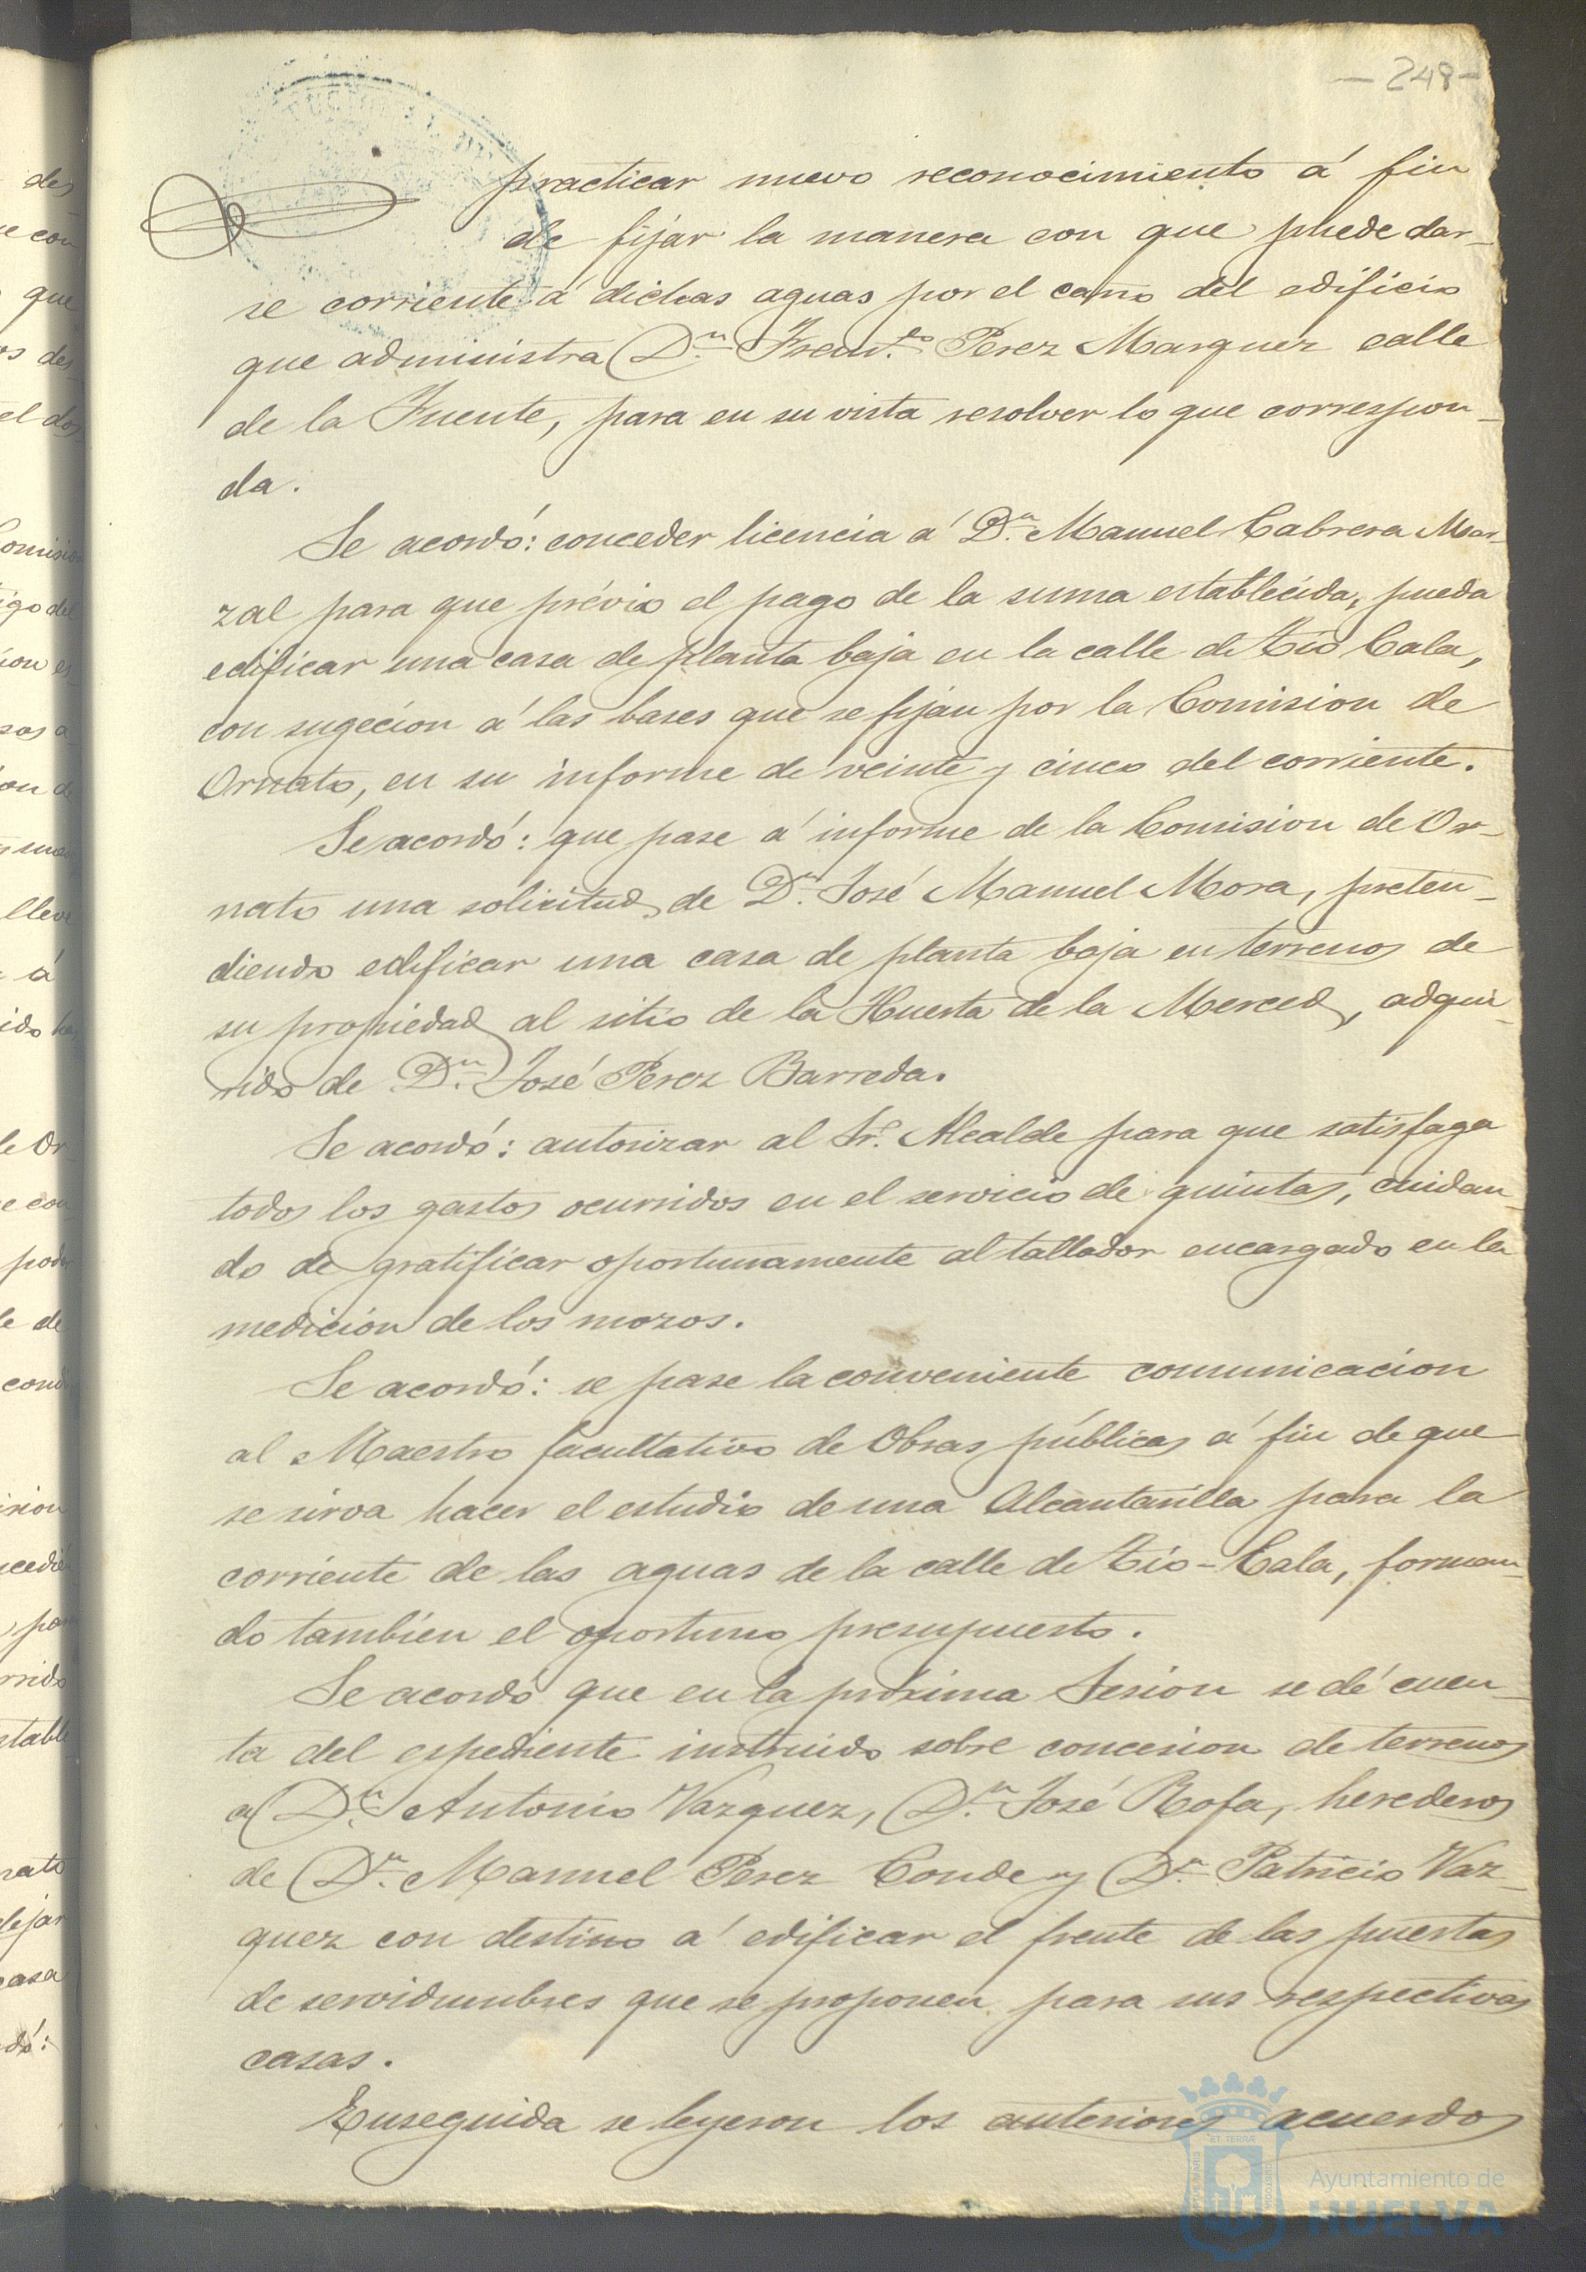 — 248 —
practicar nuevo reconocimiento á fin
de fijar la manera con que puede dar-
se corriente á dichas aguas por el caño del edificio
que administra Dn. Perez Marquez calle
de la Fuente, para en su vista resolver lo que correspon-
da.
Se acordó: conceder licencia á Dn. Manuel Cabrera Mar-
zal para que prévio el pago de la suma establecida, pueda
edificar una casa de planta baja en la calle de Tio Cala,
con sugecion á las bases que se fijan por la Comision de
Ornato, en su informe de veinte y cinco del corriente.
Se acordó: que pase á informe de la Comision de Or-
nato una solicitud de Dn. José Manuel Mora, preten-
diendo edificar una casa de planta baja en terrenos de
su propiedad al sitio de la Huerta de la Merced, adqui-
rido de Dn. José Perez Barreda.
Se acordó: autorizar al Sr. Alcalde para que satisfaga
todos los gastos ocurridos en el servicio de quintas, cuidan-
do de gratificar oportunamente al tallador encargado en la
medicion de los mozos.
Se acordó: se pase la conveniente comunicacion
al Maestro facultativo de Obras públicas á fin de que
se sirva hacer el estudio de una Alcantarilla para la
corriente de las aguas de la calle de Tio-Cala, forman-
do tambien el oportuno presupuesto.
Se acordó que en la próxima Sesion se dé cuen-
ta del espediente instruido sobre concesion de terrenos
a Dn. Antonio Vazquez, Dn. José Rofa, herederos
de Dn. Manuel Perez Conde y Dn. Patricio Vaz-
quez con destino á edificar el frente de las puertas
de servidumbres que se proponen para sus respectivas
casas.
Enseguida se leyeron los anteriores acuerdos
Ayuntamiento de
HUELVA